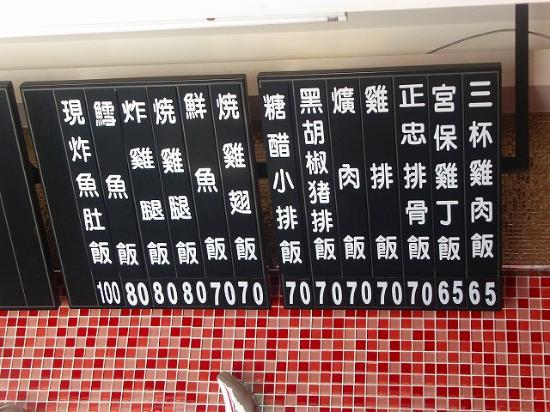 三杯雞肉飯 65
宮保雞丁飯 65
正忠排骨飯 70
雞排飯 70
爌肉飯 70
黑胡椒猪排飯 70
糖醋小排飯 70
燒雞翅飯 70
鮮魚飯 70
燒雞腿飯 80
炸雞腿飯 80
鱈魚飯 80
現炸魚肚飯 100